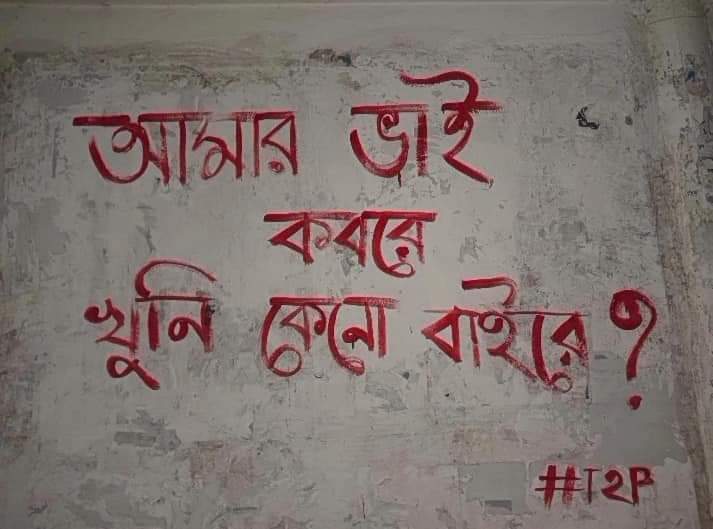 আমার ভাই
কবরে
খুনি কেনো বাইরে?
#T2P